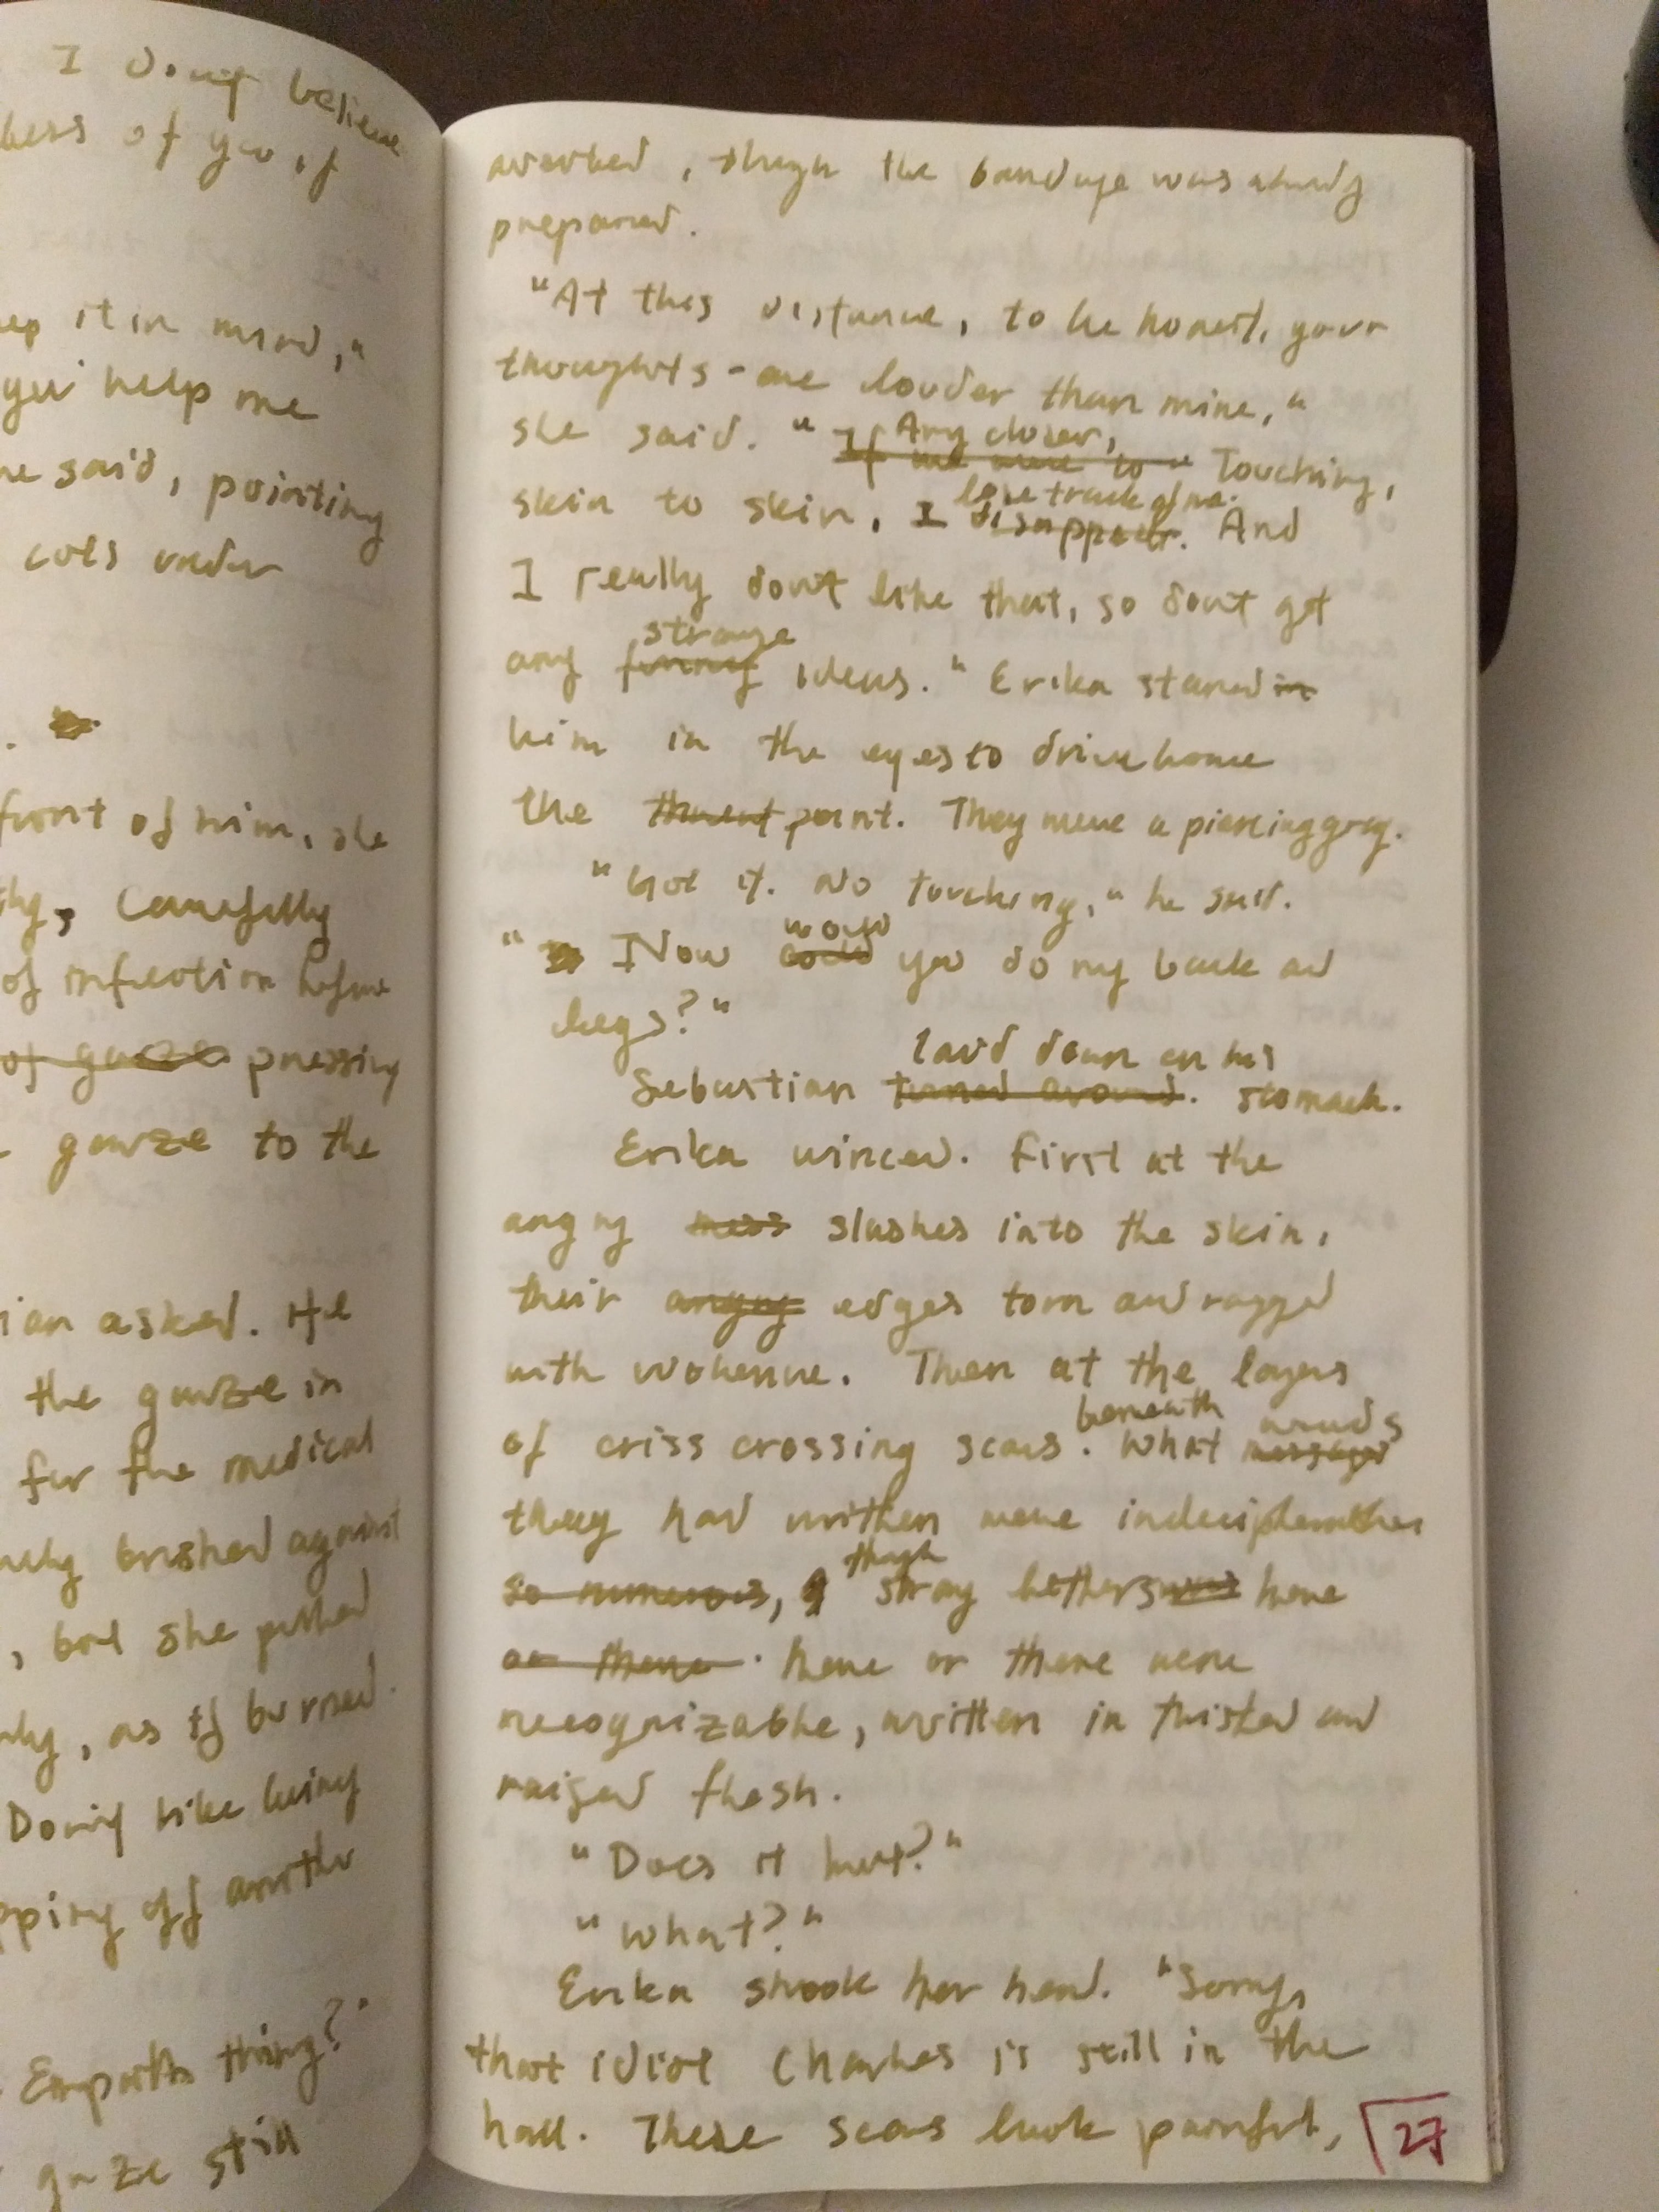 I don't believe
of you if
it in mind,"
you help me
said, pointing
cots under
front of him, she
Carefully
of infection before
of gauze pressing
gauze to the
asked. He
the gauze in
for the medical
brushed against
, but she pulled
, as if burned.
Don't like being
off another
Empath thing?"
gaze still
, though the bandage was already
prepared.
"At this distance, to be honest, your
thoughts are louder than mine,"
she said. "If we were to" Any closer, Touching,
skin to skin, I disappear. lose track of me. And
I really don't like that, so don't get
any funny strange ideas." Erika stared in
him in the eyes to drive home
the threat point. They were a piercing gray.
"Got it. No touching," he said.
"Now could would you do my back and
legs?"
Sebastian turned around. laid down on his stomach.
Erika winced. First at the
angry mess slashes into the skin,
their angry edges torn and ragged
with violence. Then at the layers
of criss crossing scars beneath. What messages words
they had written were indecipherable
so numerous, though stray letters were here
or there. here or there were
recognizable, written in twisted and
raised flesh.
"Does it hurt?"
"What?"
Erika shook her head. "Sorry,
that idiot Charles is still in the
hall. These scars look painful,
27